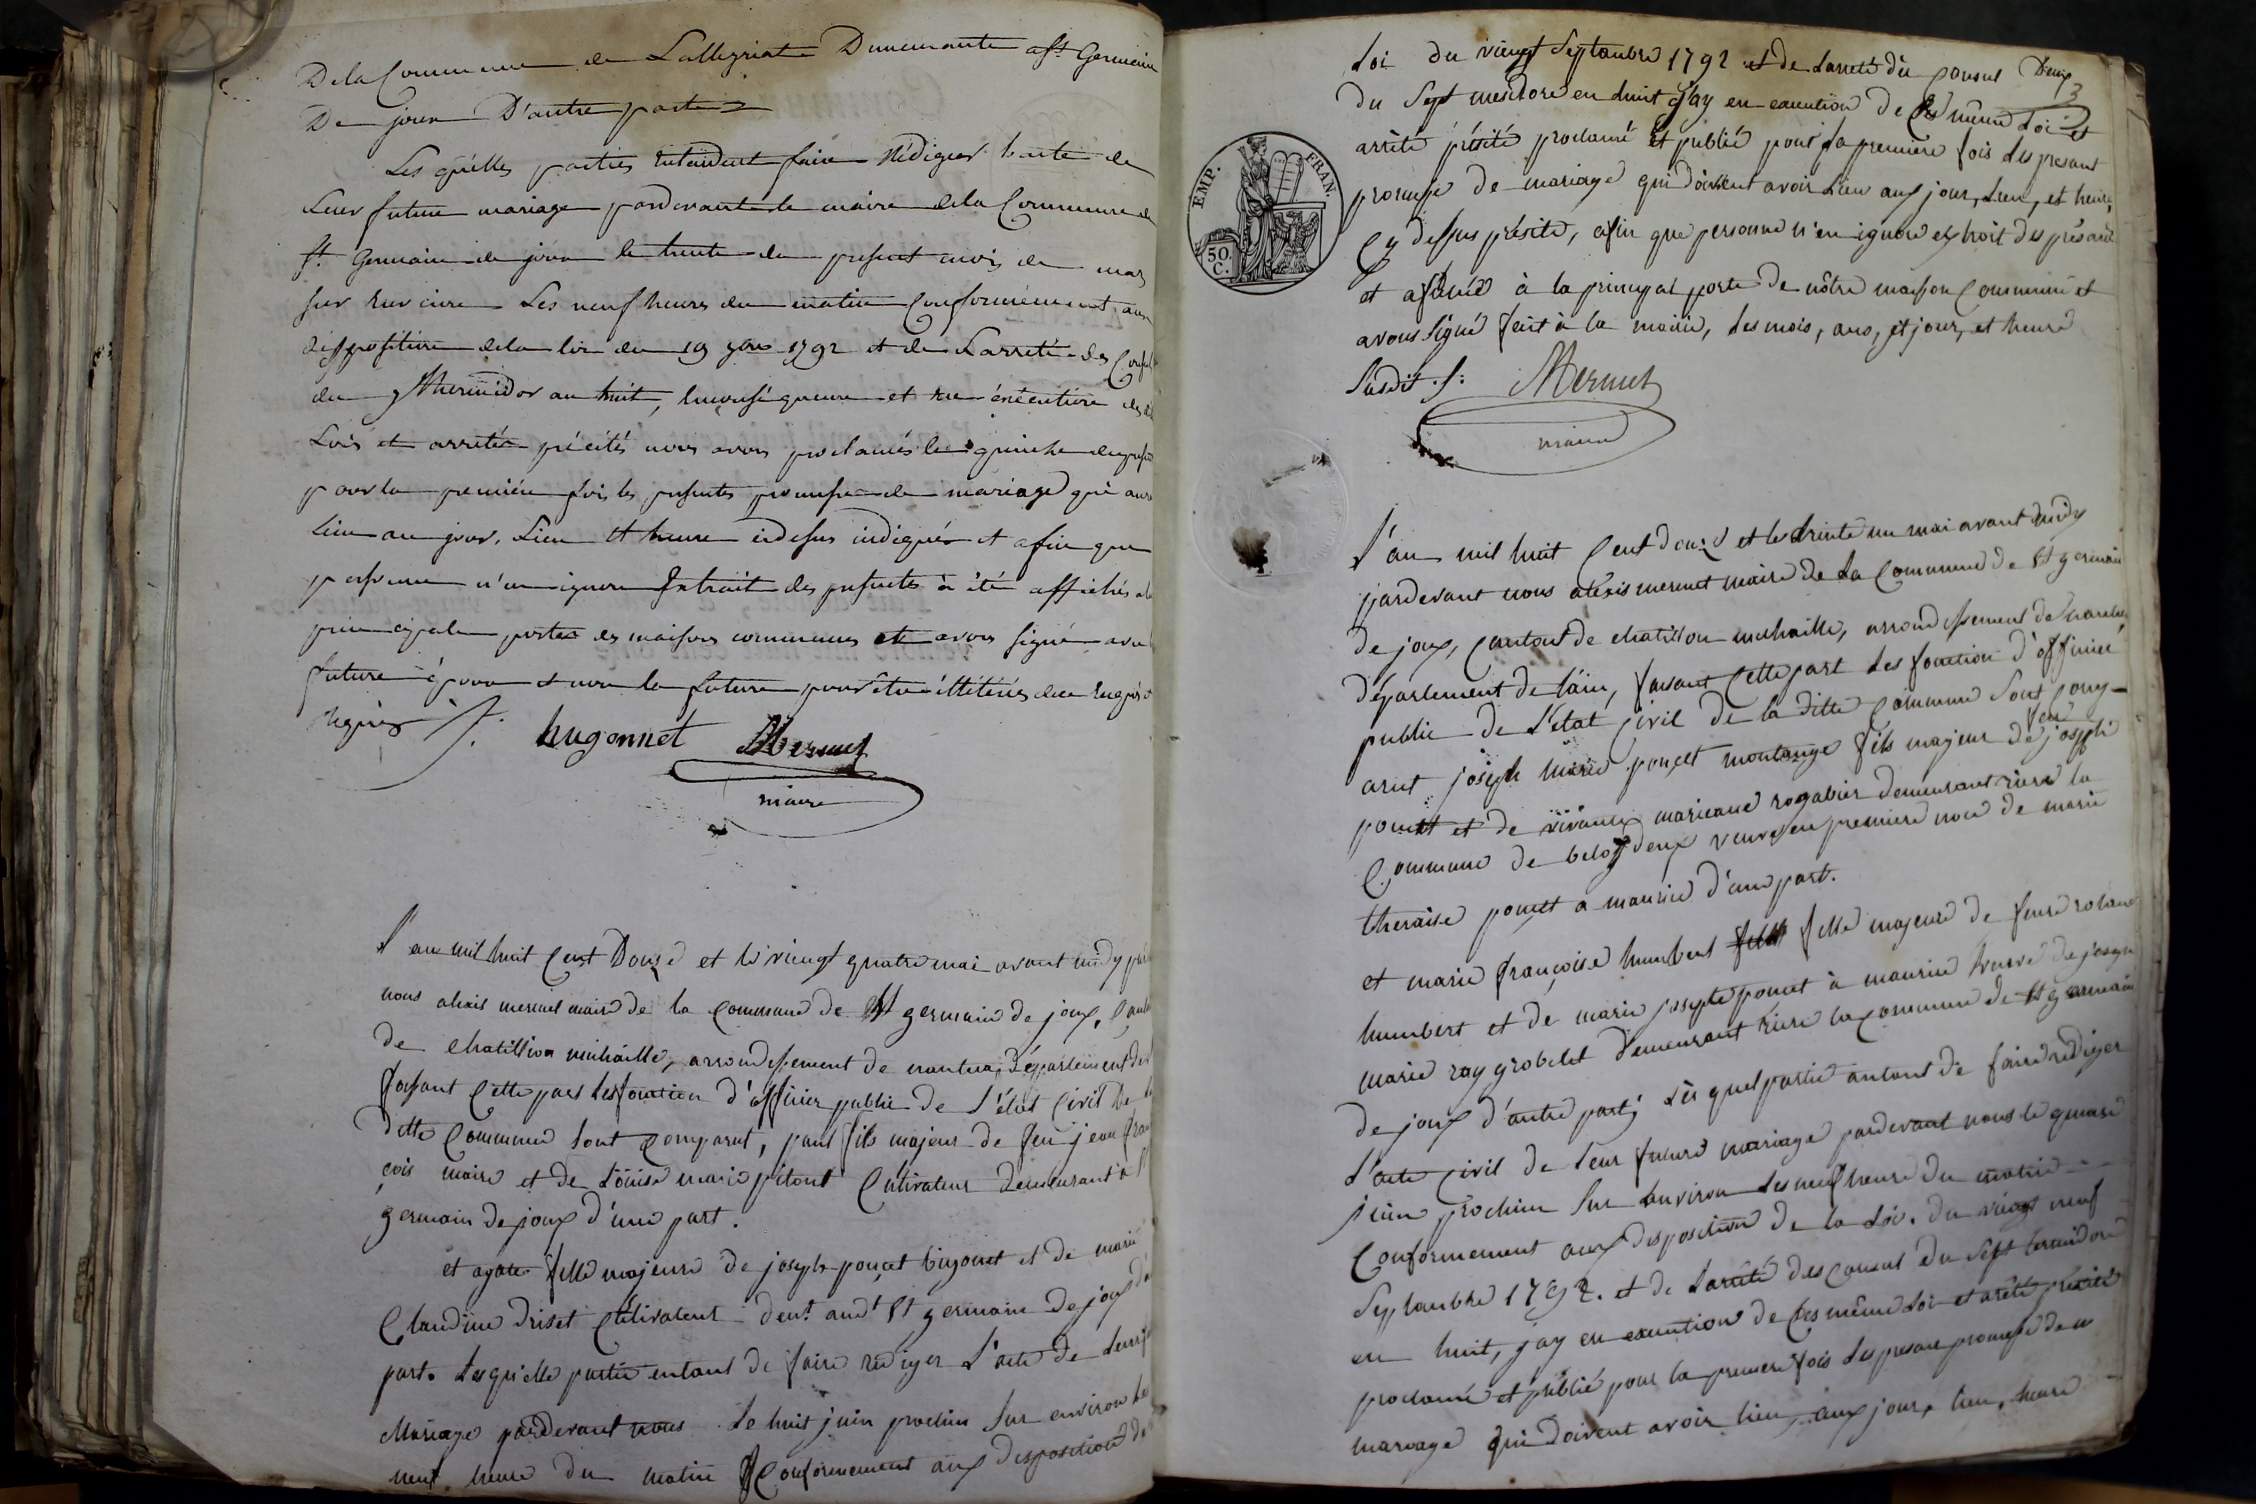 De la Commune de Lallegriat Demeurante a St Germain
De joux D'autre part
Les quelles parties Entendent faire Rédiger l'acte de
Leur future mariage pardevant le maire de la Commune de
St Germain de joux le trente du présent mois de mars
sur Environ Les neuf heures du matin Conformément aux
disposition de la loi du 19 7bre 1792 et de L'arreté des Consuls
du 7 thermidor an huit, En conséquence et En éxécution des
Lois et arretés précités nous avons proclamés le quinze du présent
pour la premiére fois les présentes promesse de mariage qui aura
Lieu au jour, Lieu et heure cidessus indiqués et afin que
personne n'en ignore Extrait des présentes à été affichés a la
principale porte des maisons communes et avons signé avec
future épouse
requis f.
hugonnet AMermet
maire
L'an mil huit Cent Douze et le viengt quatre mai avant midy
nous alexis mermet maire de la Commune de St germain de joux, Canton
de Chatillion michaille, arrondissement de nantua, Département de
faisant Cette part les fonction d'officier public de L'état Civil De la
ditte Commune sont Comparut, paul fils majeur de feu jean fran
çois maire et de Loüise marie pitout Cultivateur Demeurant à St
germain de joux d'une part.
et agate fille majeure de joseph ponçet bigonet et de marie
Claudine driset Cultivateur demt audt St germain De joux d'
part. Les qu'elle partie entant de faire rédiger L'acte de Leur
Mariage pardevant nous Le huit juin prochin Sur environ les
neuf heure du matin Conformement aux Disposition de
Loi du vieugt Septambre 1792 et de Larreté du Consul
3
du Sept mesidore en huit j'ay en execution de Ces même Loi et
arrêté présité proclamé et publié pour la premiére fois les presant
promesse de mariage qui doivent avoir Lieu aux jour, Lieu, et heure,
Cy dessus présité, afin que personne n'en ignore extroit des présante
et afiché à la principal porte de nôtre maison Commune et
avons Signé fait à la mairie, les mois, ans, et jour, et heure
Susdit f: AMermet
maire
EMP. FRAN
50 C.
L'an mil huit Cent douze et le trinte un mai avant midy
pardevant nous alexis mermet maire de La Commune de St germain
de joux, Canton de chatillon michaille, arrondissement de nantua
département de l'ain, faisant Cette part les fonction d'officier
public de L'état Civil de la ditte Commune sont Comp-
arut joseph marie ponçet montange fils majeur de feu joseph
poncet et de vivante mariane rogabier demeurant riere la
Commune de beloydoux veuve en premiere noce de marie
theraise poncet a maurice d'une part.
et marie françoise humbert fille majeure de feu roland
humbert et de marie josephte poncet à maurice veuve de joseph
marie ray grobelet demeurant riere la Commune de St germain
de joux d'autre part; Les quel partie antant de faire rédiger
L'acte Civil de Leur future mariage pardevant nous le quinze
juin prochin Sur environ les neuf heure du matin
Conformement aux disposition de la Loi. du vieugt neuf
Septambre 1792. et de Larrêté des Consul du Sept termidore
en huit, jay en execution de Ces même Loi et arêté présité
proclamé et publié pour la premiere fois les presant promesse de m
mariage qui doivent avoir lieu, aux jour, lieu, heure